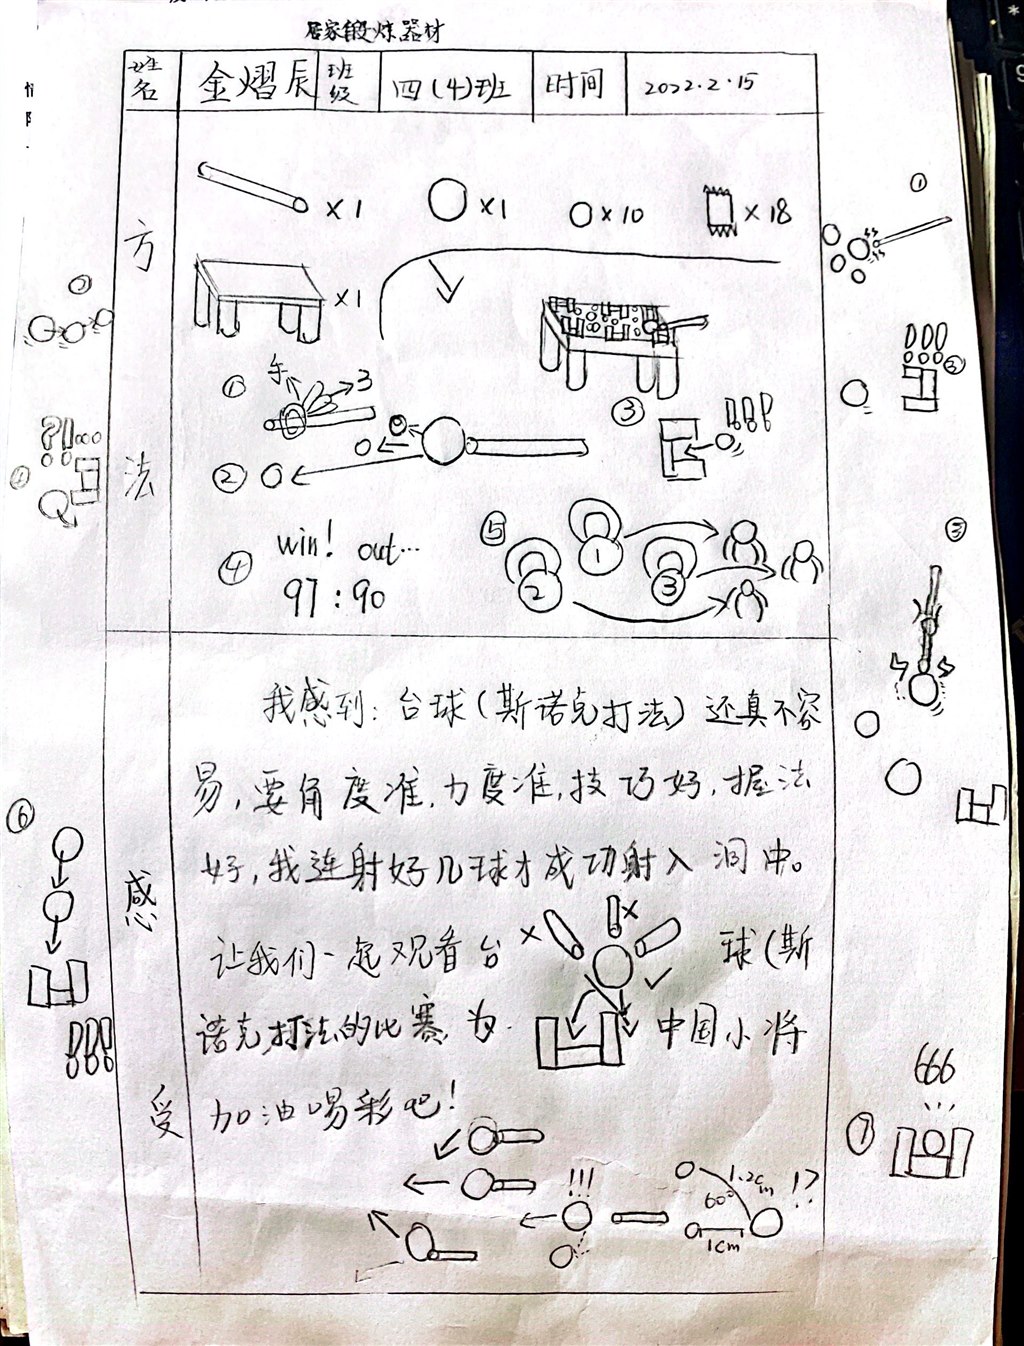 居家锻炼器材
姓名 金熠辰 班级 四(4)班 时间 2022.2.15
方法
×1 ×1 ×10 ×18
×1
① 手 3
②
③ !!!
④ win! out...
97:90
⑤ ① ② ③
感受
我感到:台球(斯诺克打法)还真不容
易,要角度准,力度准,技巧好,握法
好,我连射好几球才成功射入洞中。
让我们一起观看台球(斯
诺克打法的比赛,为中国小将
加油喝彩吧!
!!!
1.2cm
60°
!?
1cm
①
②
!!!
③
④
?!
⑥
!!!
⑦
666